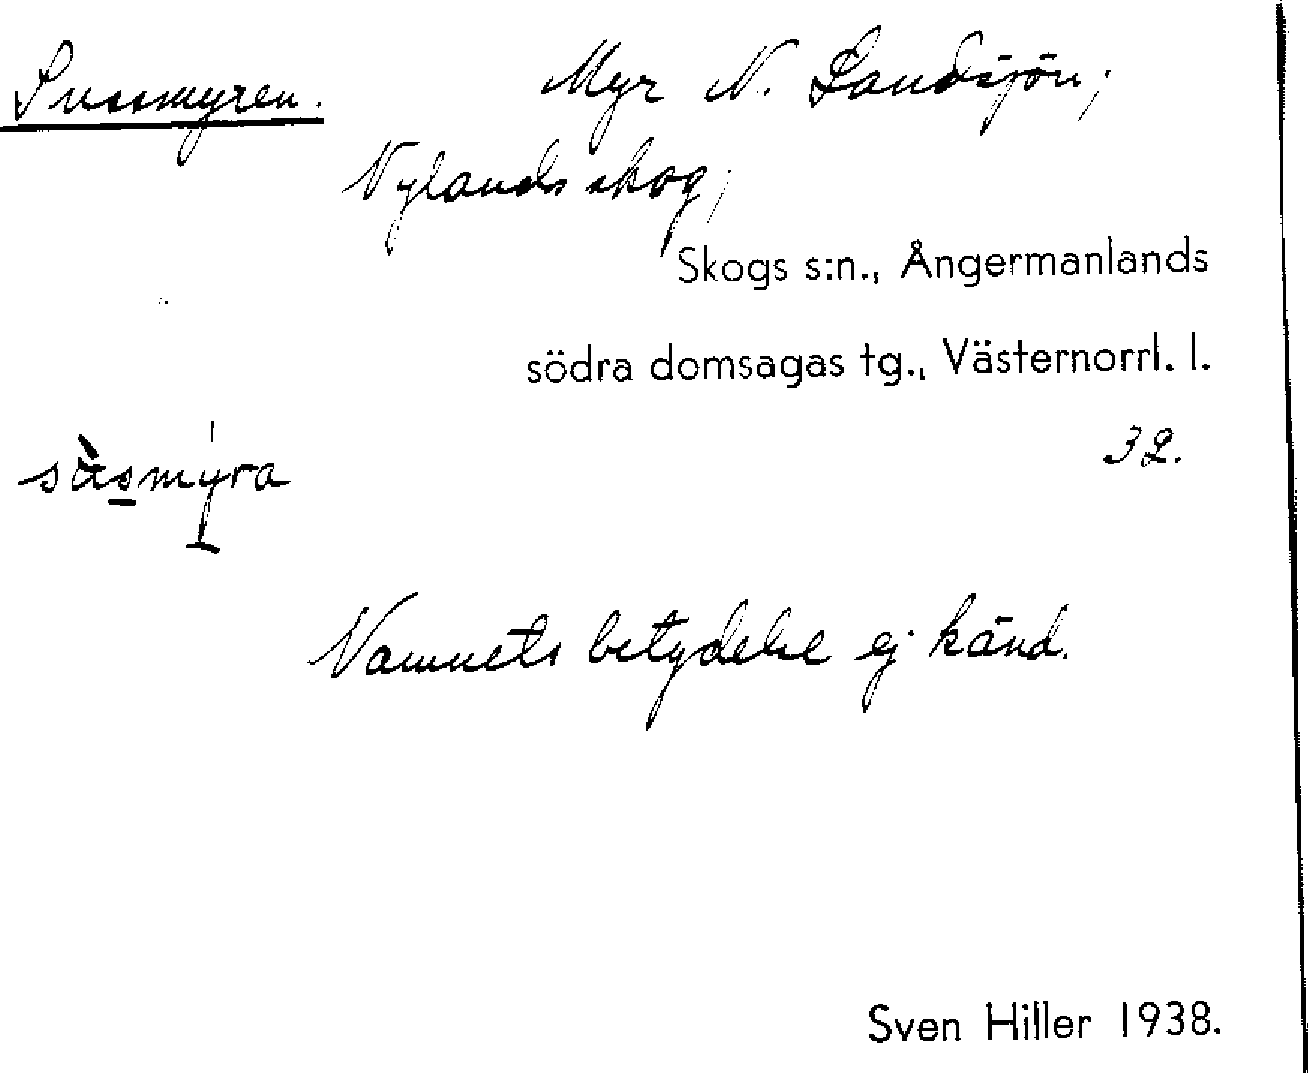 Sussmyren.
Myr N. Sandsjön,
Nylands skog,
Skogs s:n., Ångermanlands
södra domsagas tg., Västernorrl. l.
32.
sùsmyra
Namnets betydelse ej känd.
Sven Hiller 1938.